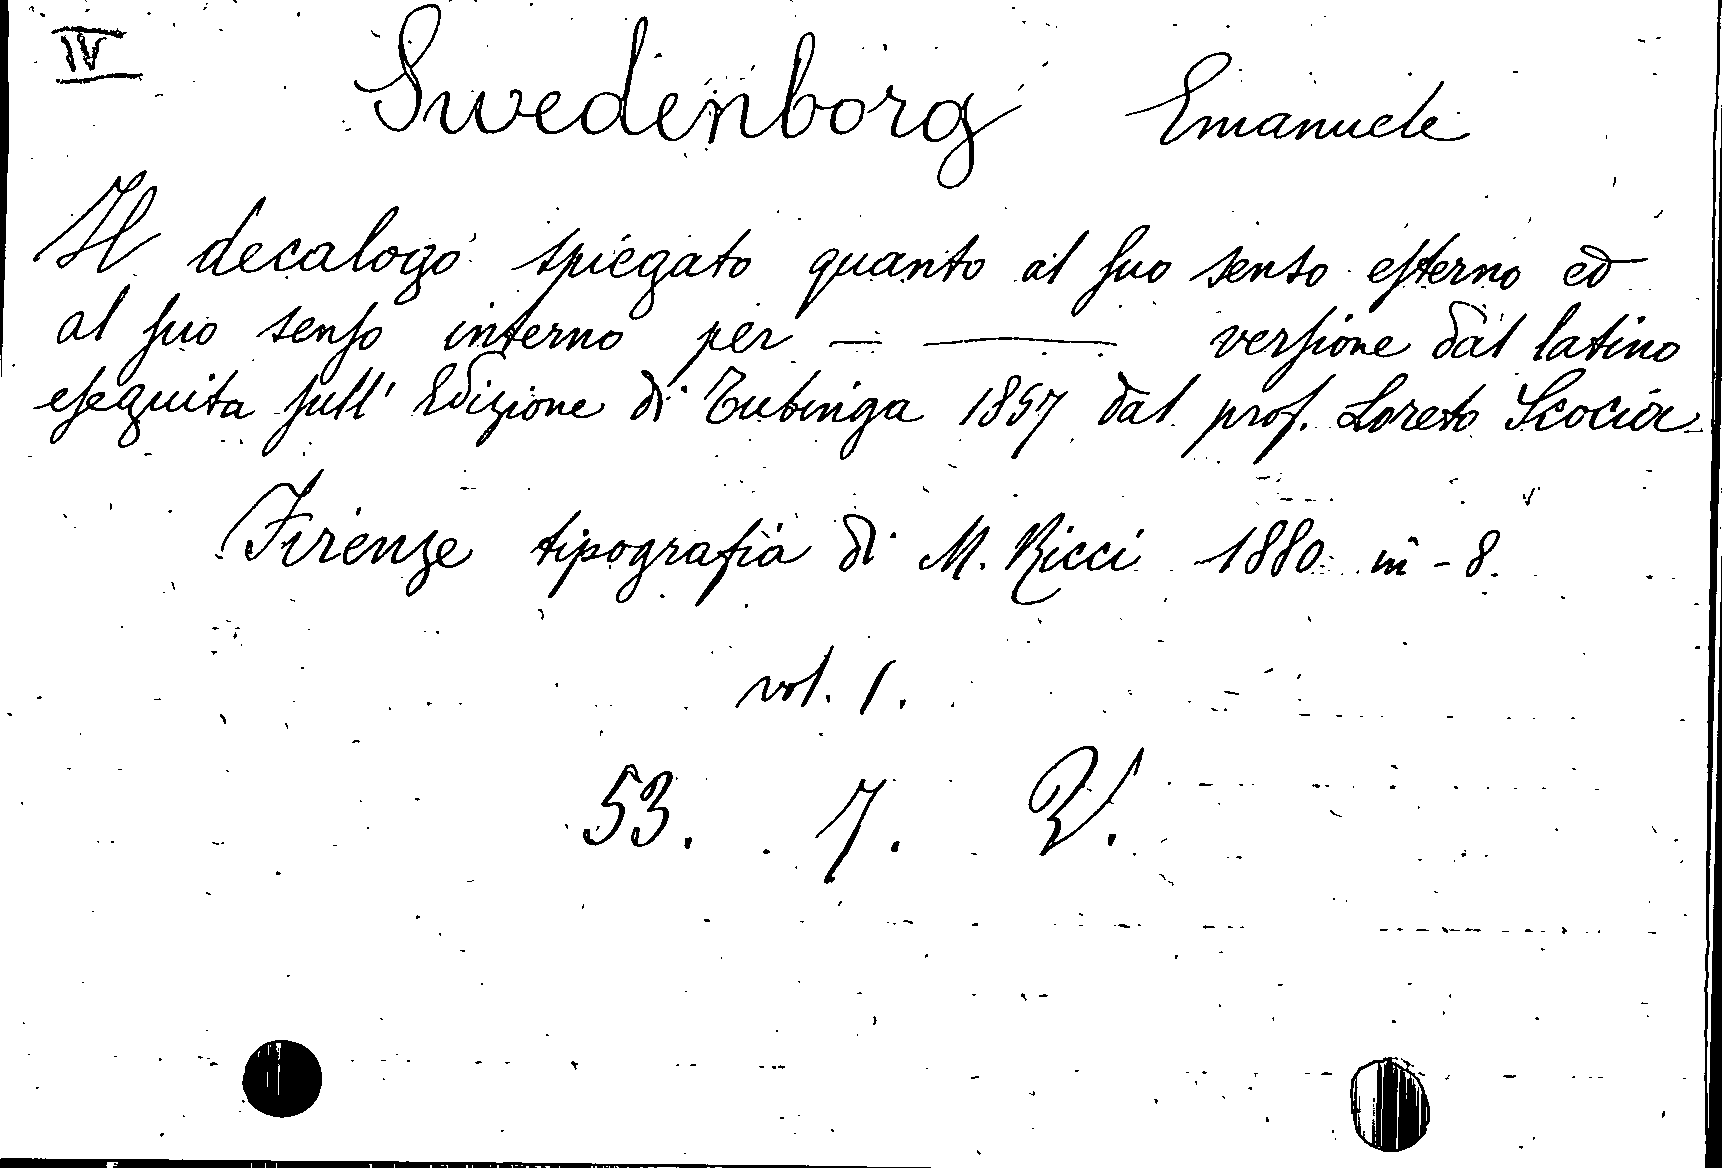 IV
Swedenborg Emanuele
Il decalogo spiegato quanto al suo senso esterno ed
al suo senso interno per — —— versione dal latino
eseguita sull' Edizione di Tubinga 1857 dal prof. Loreto Scocia
Firenze tipografia di M. Ricci 1880 in - 8.
vol. 1.
53. 7.